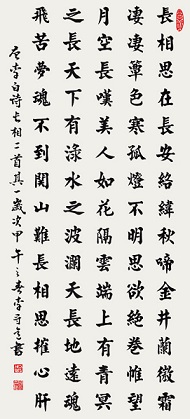 長相思在長安絡緯秋啼金井蘭微霜
凄凄簟色寒孤燈不明思欲絕卷帷望
月空長嘆美人如花隔雲端上有青冥
之長天下有淥水之波瀾天長地遠魂
飛苦夢魂不到関山難長相思摧心肝
李白詩長相二首其一歲次甲午之春李書